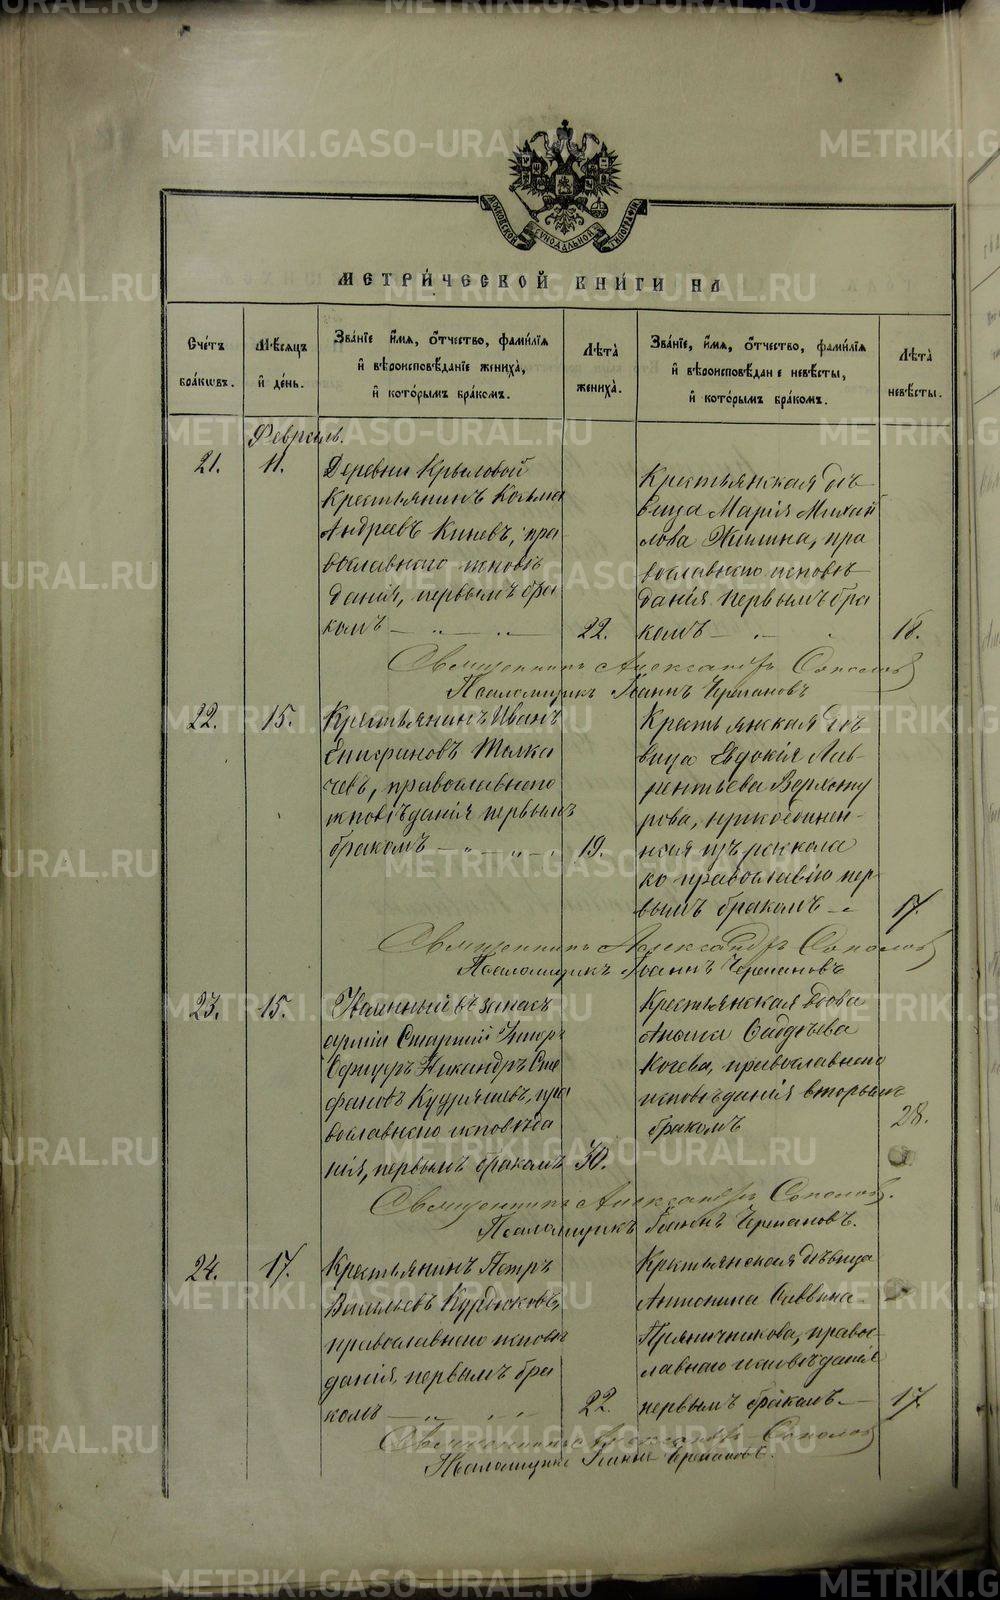 METRIKI.GASO-URAL.RU
МОСКОВСКОЙ СУНОДАЛЬНОЙ ТИПОГРАФІИ
МЕТРИ́ЧЕСКОЙ КНИ́ГИ НА
Сче́тъ бра́кѡвъ.
Мѣ́сяцъ и҆ де́нь.
Зва́нїе и҆́мя, ѻ҆́тчество, фами́лїя
и҆ вѣроисповѣ́данїе жениха̀,
и҆ кото́рымъ бра́комъ.
Лѣта̀ жениха̀.
Зва́нїе, и҆́мя, ѻ҆́тчество, фами́лїя
и҆ вѣроисповѣ́данїе невѣ́сты,
и҆ кото́рымъ бра́комъ.
Лѣта̀ невѣ́сты.
Февраль.
21.
11.
Деревни Крыловой
Крестьянинъ Козьма
Андреевъ Киневъ, пра
вославнаго исповѣ
данія, первымъ бра
комъ
22.
Крестьянская дѣ
вица Марія Михай
лова Жилина, пра
вославнаго исповѣ
данія первымъ бра
комъ
18.
Священникъ Александръ Соколовъ
Псаломщикъ Іоаннъ Черепановъ
22.
15.
Крестьянинъ Иванъ
Епифановъ Толка
чевъ, православнаго
исповѣданія первымъ
бракомъ
19.
Крестьянская дѣ
вица Евдокія Лав-
рентьева Верхоту
рова, присоединен-
ная изъ раскола
ко православію пер
вымъ бракомъ
17.
Священникъ Александръ Соколовъ
Псаломщикъ Іоаннъ Черепановъ
23.
15.
Уволенный въ запасъ
арміи Старшій Унтеръ
Офицеръ Никандръ Сте
фановъ Кудряшевъ, пра
вославнаго исповѣда
нія, первымъ бракомъ
30.
Крестьянская вдова
Анна Савдѣева
Кочева, православнаго
исповѣданія вторымъ
бракомъ
28.
Священникъ Александръ Соколовъ.
Псаломщикъ Іоаннъ Черепановъ.
24.
17.
Крестьянинъ Петръ
Васильевъ Курдюковъ,
православнаго исповѣ
данія, первымъ бра
комъ
22.
Крестьянская дѣвица
Антонина Саввина
Пряничникова, право-
славнаго исповѣданія
первымъ бракомъ
17.
Священникъ Александръ Соколовъ
Псаломщикъ Іоаннъ Черепановъ.